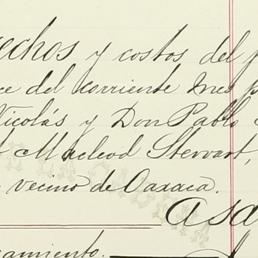 echos y costos del p
ce del corriente Ines p
Nicolás y Don Pablo
t Macleod Stewart,
vecino de Oaxaca.
asa
amiento.